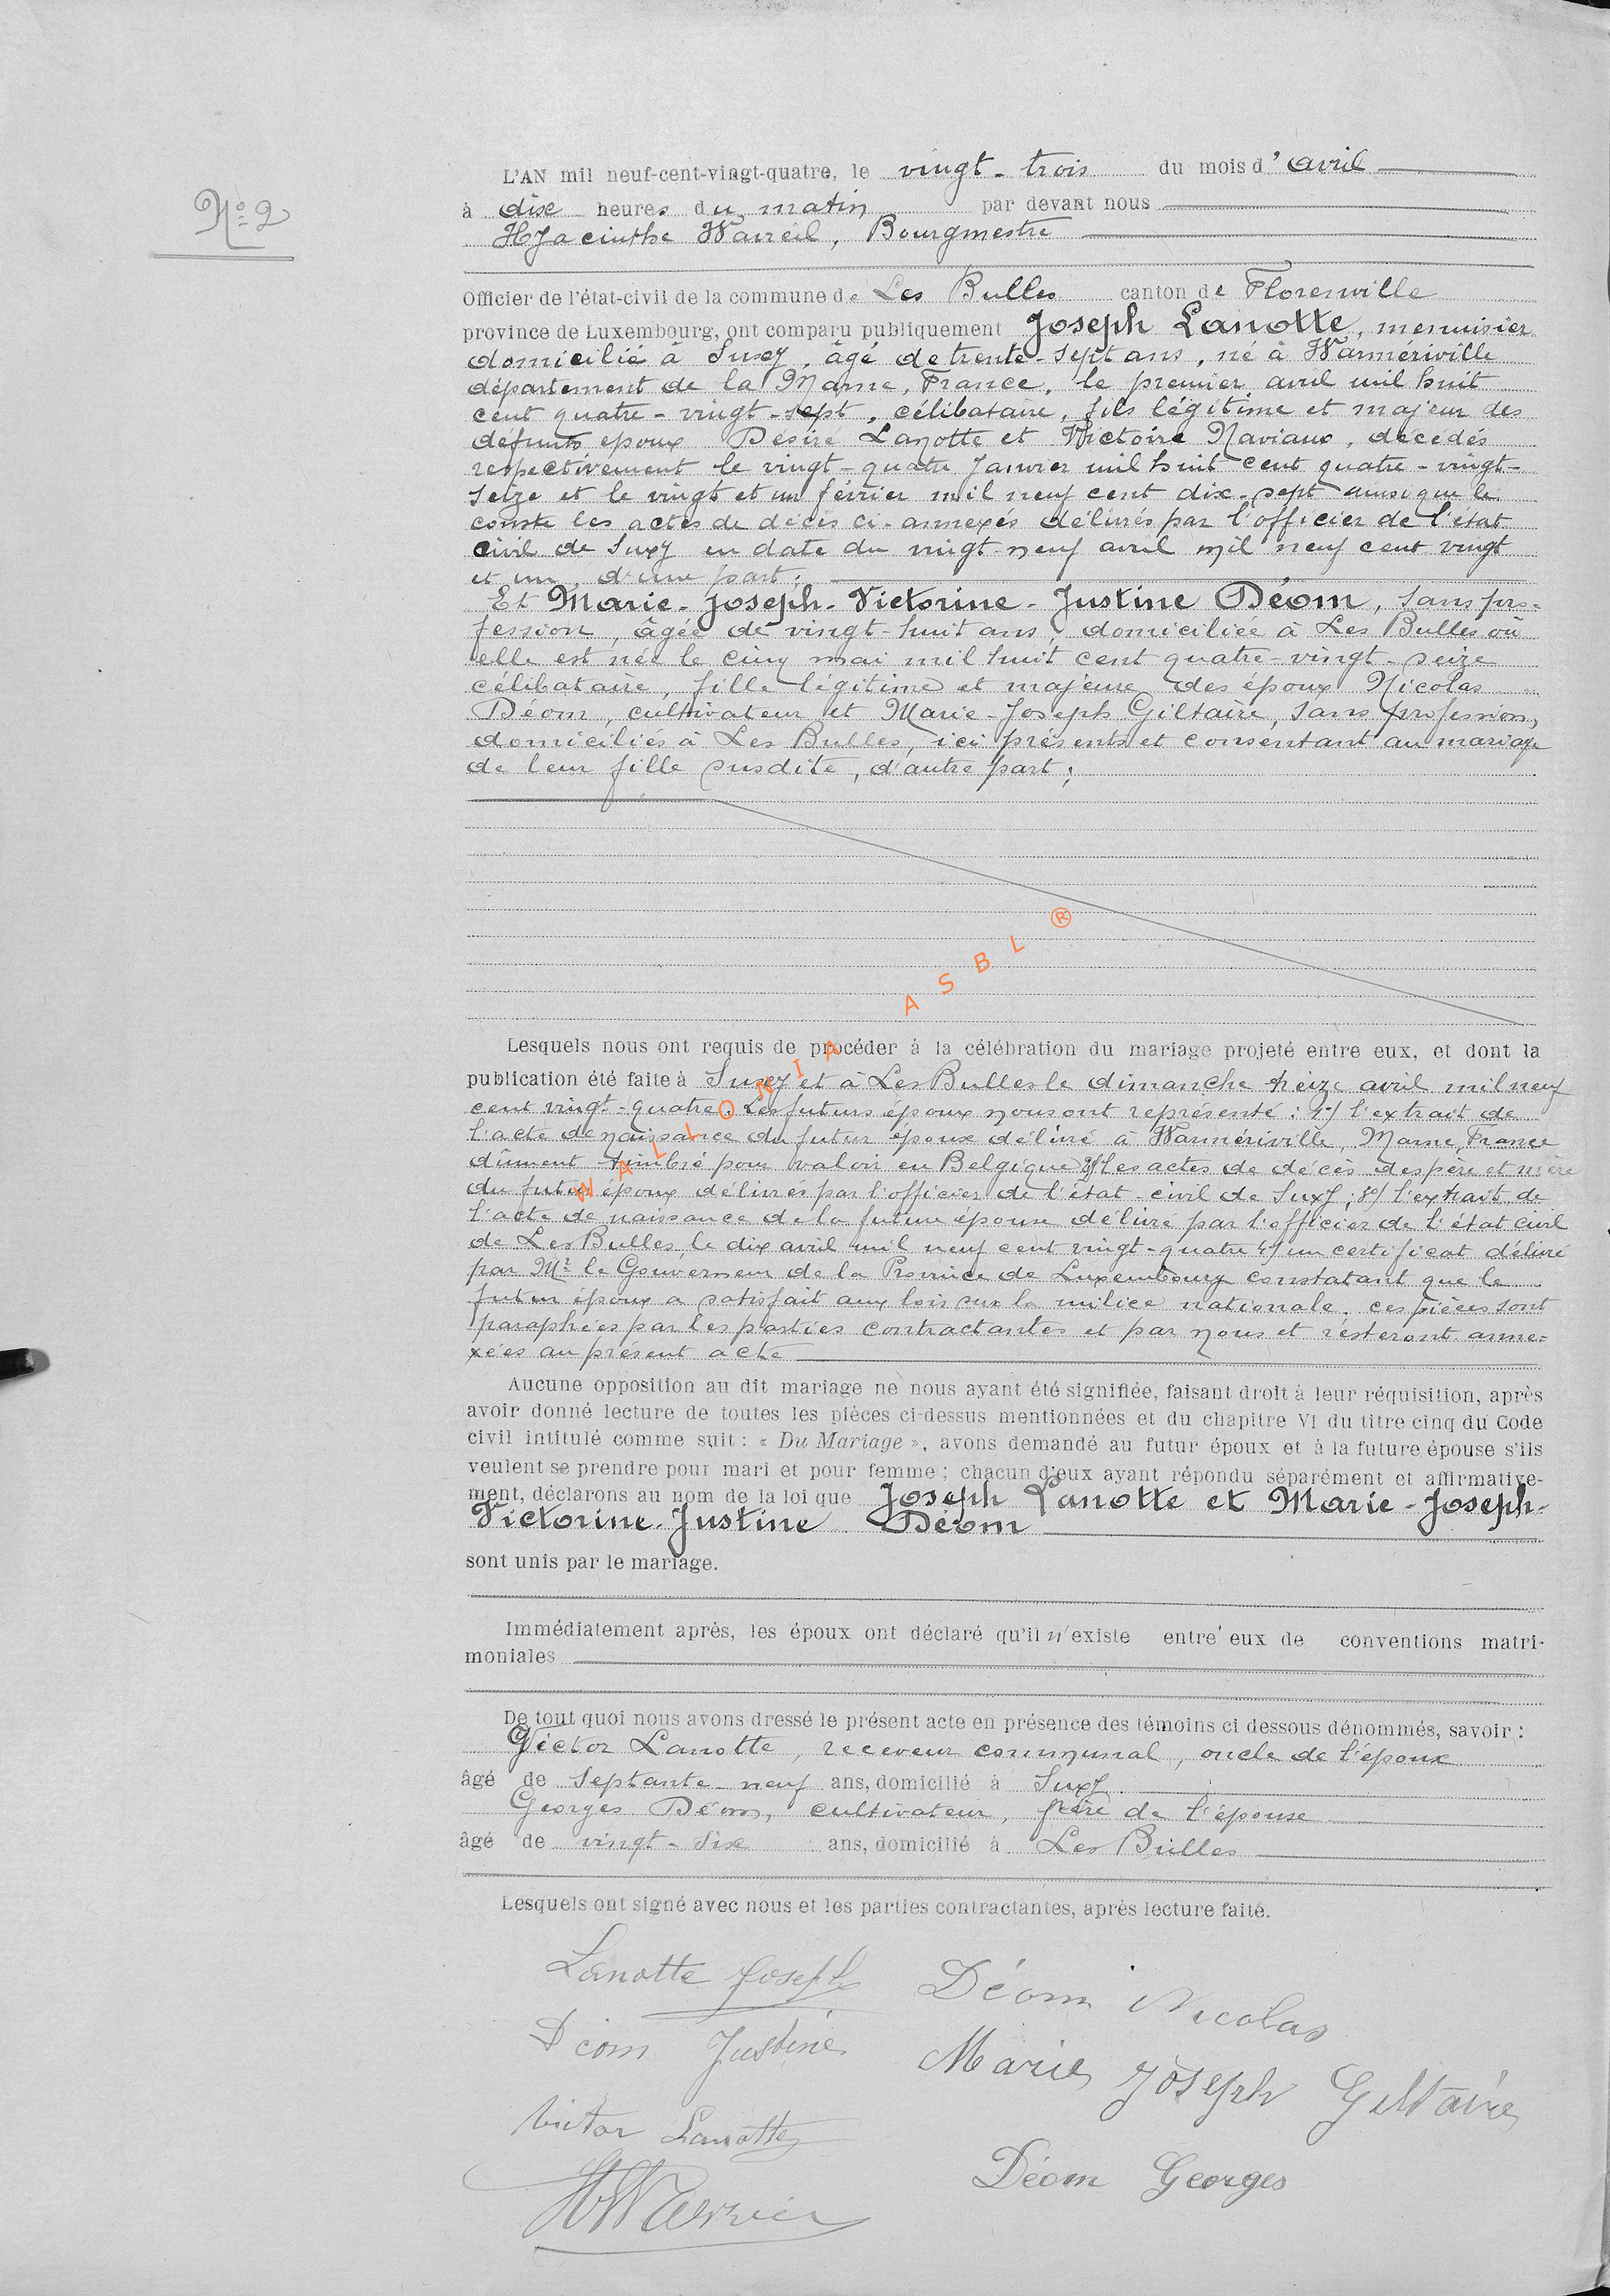 Nº 2
L'AN mil neuf-cent-vingt-quatre, le vingt-trois du mois d'avril
à dix heures du matin par devant nous
Hyacinthe Warreil, Bourgmestre
Officier de l'état-civil de la commune de Les Bulles canton de Florenville
province de Luxembourg, ont comparu publiquement Joseph Lanotte, menuisier
domicilié à Suxy, âgé de trente-sept ans, né à Warmériville
département de la Marne, France, le premier avril mil huit
cent quatre-vingt-sept, célibataire, fils légitime et majeur des
défunts époux Désiré Lanotte et Victoire Naviaux, décédés
respectivement le vingt-quatre janvier mil huit cent quatre-vingt-
seize et le vingt et un février mil neuf cent dix-sept ainsi que le
conste les actes de décès ci-annexés délivrés par l'officier de l'état
civil de Suxy en date du vingt-neuf avril mil neuf cent vingt
et un, d'une part;
Et Marie-Joseph-Victorine-Justine Déom, sans pro=
fession, âgée de vingt-huit ans, domiciliée à Les Bulles où
elle est née le cinq mai mil huit cent quatre-vingt-seize
célibataire, fille légitime et majeure des époux Nicolas
Déom, cultivateur et Marie-Joseph Giltaire, sans profession,
domiciliés à Les Bulles, ici présents et consentant au mariage
de leur fille susdite, d'autre part;
Lesquels nous ont requis de procéder à la célébration du mariage projeté entre eux, et dont la
publication été faite à Suxy et à Les Bulles le dimanche treize avril mil neuf
cent vingt-quatre. Les futurs époux nous ont représenté: 1º/ l'extrait de
l'acte de naissance du futur époux délivré à Warmériville, Marne, France
dûment timbré pour valoir en Belgique 2º/ les actes de décès des père et mère
du futur époux délivrés par l'officier de l'état-civil de Suxy; 3º/ l'extrait de
l'acte de naissance de la future épouse délivré par l'officier de l'état civil
de Les Bulles, le dix avril mil neuf cent vingt-quatre 4º/ un certificat délivré
par Mr le Gouverneur de la Province de Luxembourg constatant que le
futur époux a satisfait aux lois sur la milice nationale, ces pièces sont
paraphées par les parties contractantes et par nous et resteront anne=
xées au présent acte
Aucune opposition au dit mariage ne nous ayant été signifiée, faisant droit à leur réquisition, après
avoir donné lecture de toutes les pièces ci-dessus mentionnées et du chapitre VI du titre cinq du Code
civil intitulé comme suit: « Du Mariage », avons demandé au futur époux et à la future épouse s'ils
veulent se prendre pour mari et pour femme; chacun d'eux ayant répondu séparément et affirmative-
ment, déclarons au nom de la loi que Joseph Lanotte et Marie-Joseph-
Victorine-Justine Déom
sont unis par le mariage.
Immédiatement après, les époux ont déclaré qu'il n'existe entre eux de conventions matri-
moniales
De tout quoi nous avons dressé le présent acte en présence des témoins ci dessous dénommés, savoir:
Victor Lanotte, receveur communal, oncle de l'époux
âgé de septante-neuf ans, domicilié à Suxy
Georges Déom, cultivateur, frère de l'épouse
âgé de vingt-six ans, domicilié à Les Bulles
Lesquels ont signé avec nous et les parties contractantes, après lecture faite.
Lanotte Joseph Déom Nicolas
Déom Justine Marie Joseph Giltaire
Victor Lanotte
Déom Georges
WALLONIA ASBL ®